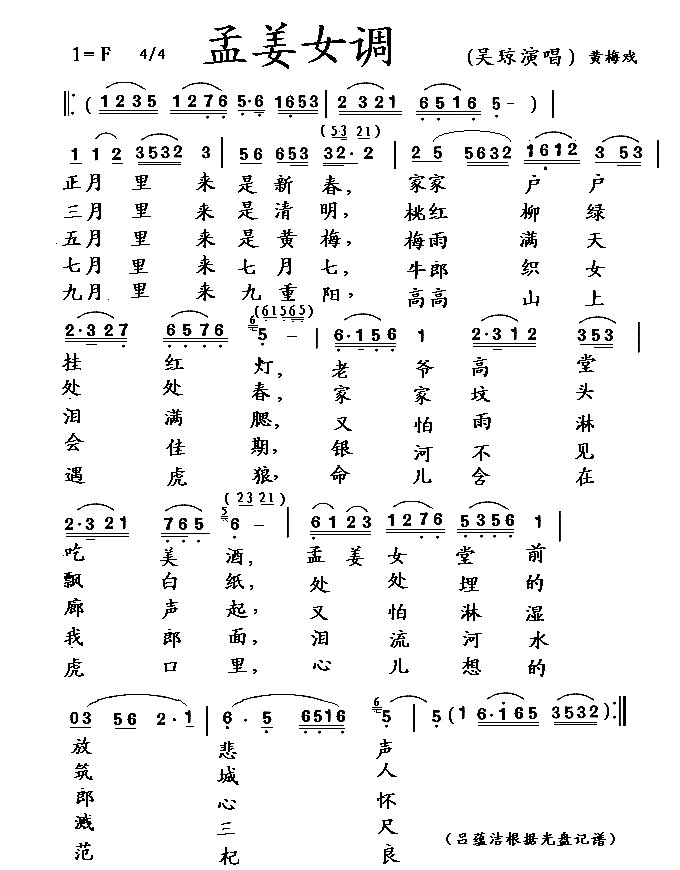 孟姜女调
1=F 4/4 (吴琼演唱) 黄梅戏
(1235 1276 5·6 1653 | 2 321 6516 5 - )
(53 21)
1 1 2 3532 3 | 56 653 32· 2 | 2 5 5632 1612 3 53 |
正月里来是新春，家家户户
三月里来是清明，桃红柳绿
五月里来是黄梅，梅雨满天
七月里来七月七，牛郎织女
九月里来九重阳，高高山上
(61565)
2·327 6576 6 5 - | 6·156 1 2·312 353 |
挂红灯，老爷高堂
处处春，家家坟头
泪满腮，又怕雨淋
会佳期，银河不见
遇虎狼，命儿含在
(23 21)
2·321 765 5 6 - | 61 23 1276 5356 1 |
吃美酒，孟姜女堂前
飘白纸，处处埋的
廊声起，又怕淋湿
我郎面，泪流河水
虎口里，心儿想的
03 56 2·1 | 6·5 6516 6 5 | 5 (1 6·165 3532) :||
放悲声
筑城人
郎心怀
溅三尺
范杞良
(吕蕴洁根据光盘记谱)